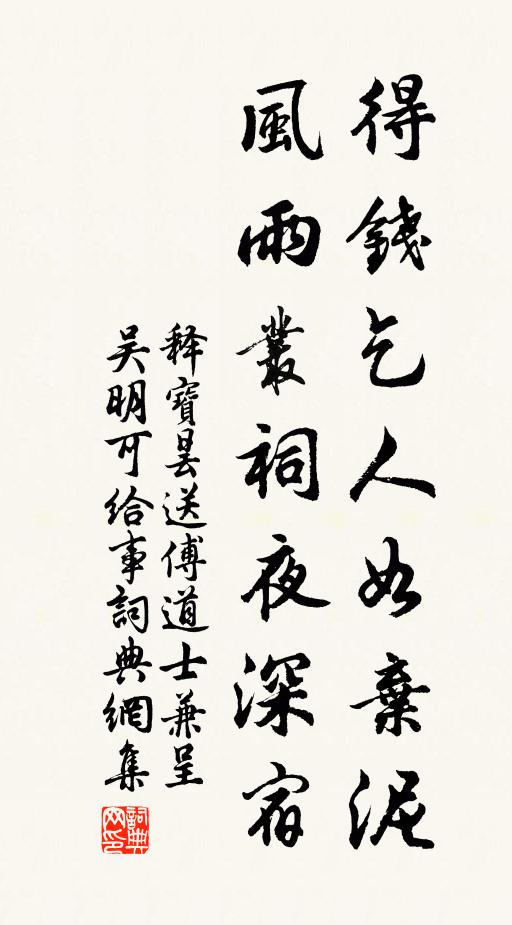 得錢乞人如棄泥
風雨叢祠夜深宿
释寶曇送傅道士兼呈
吴明可給事詞典網集
詞典
网印